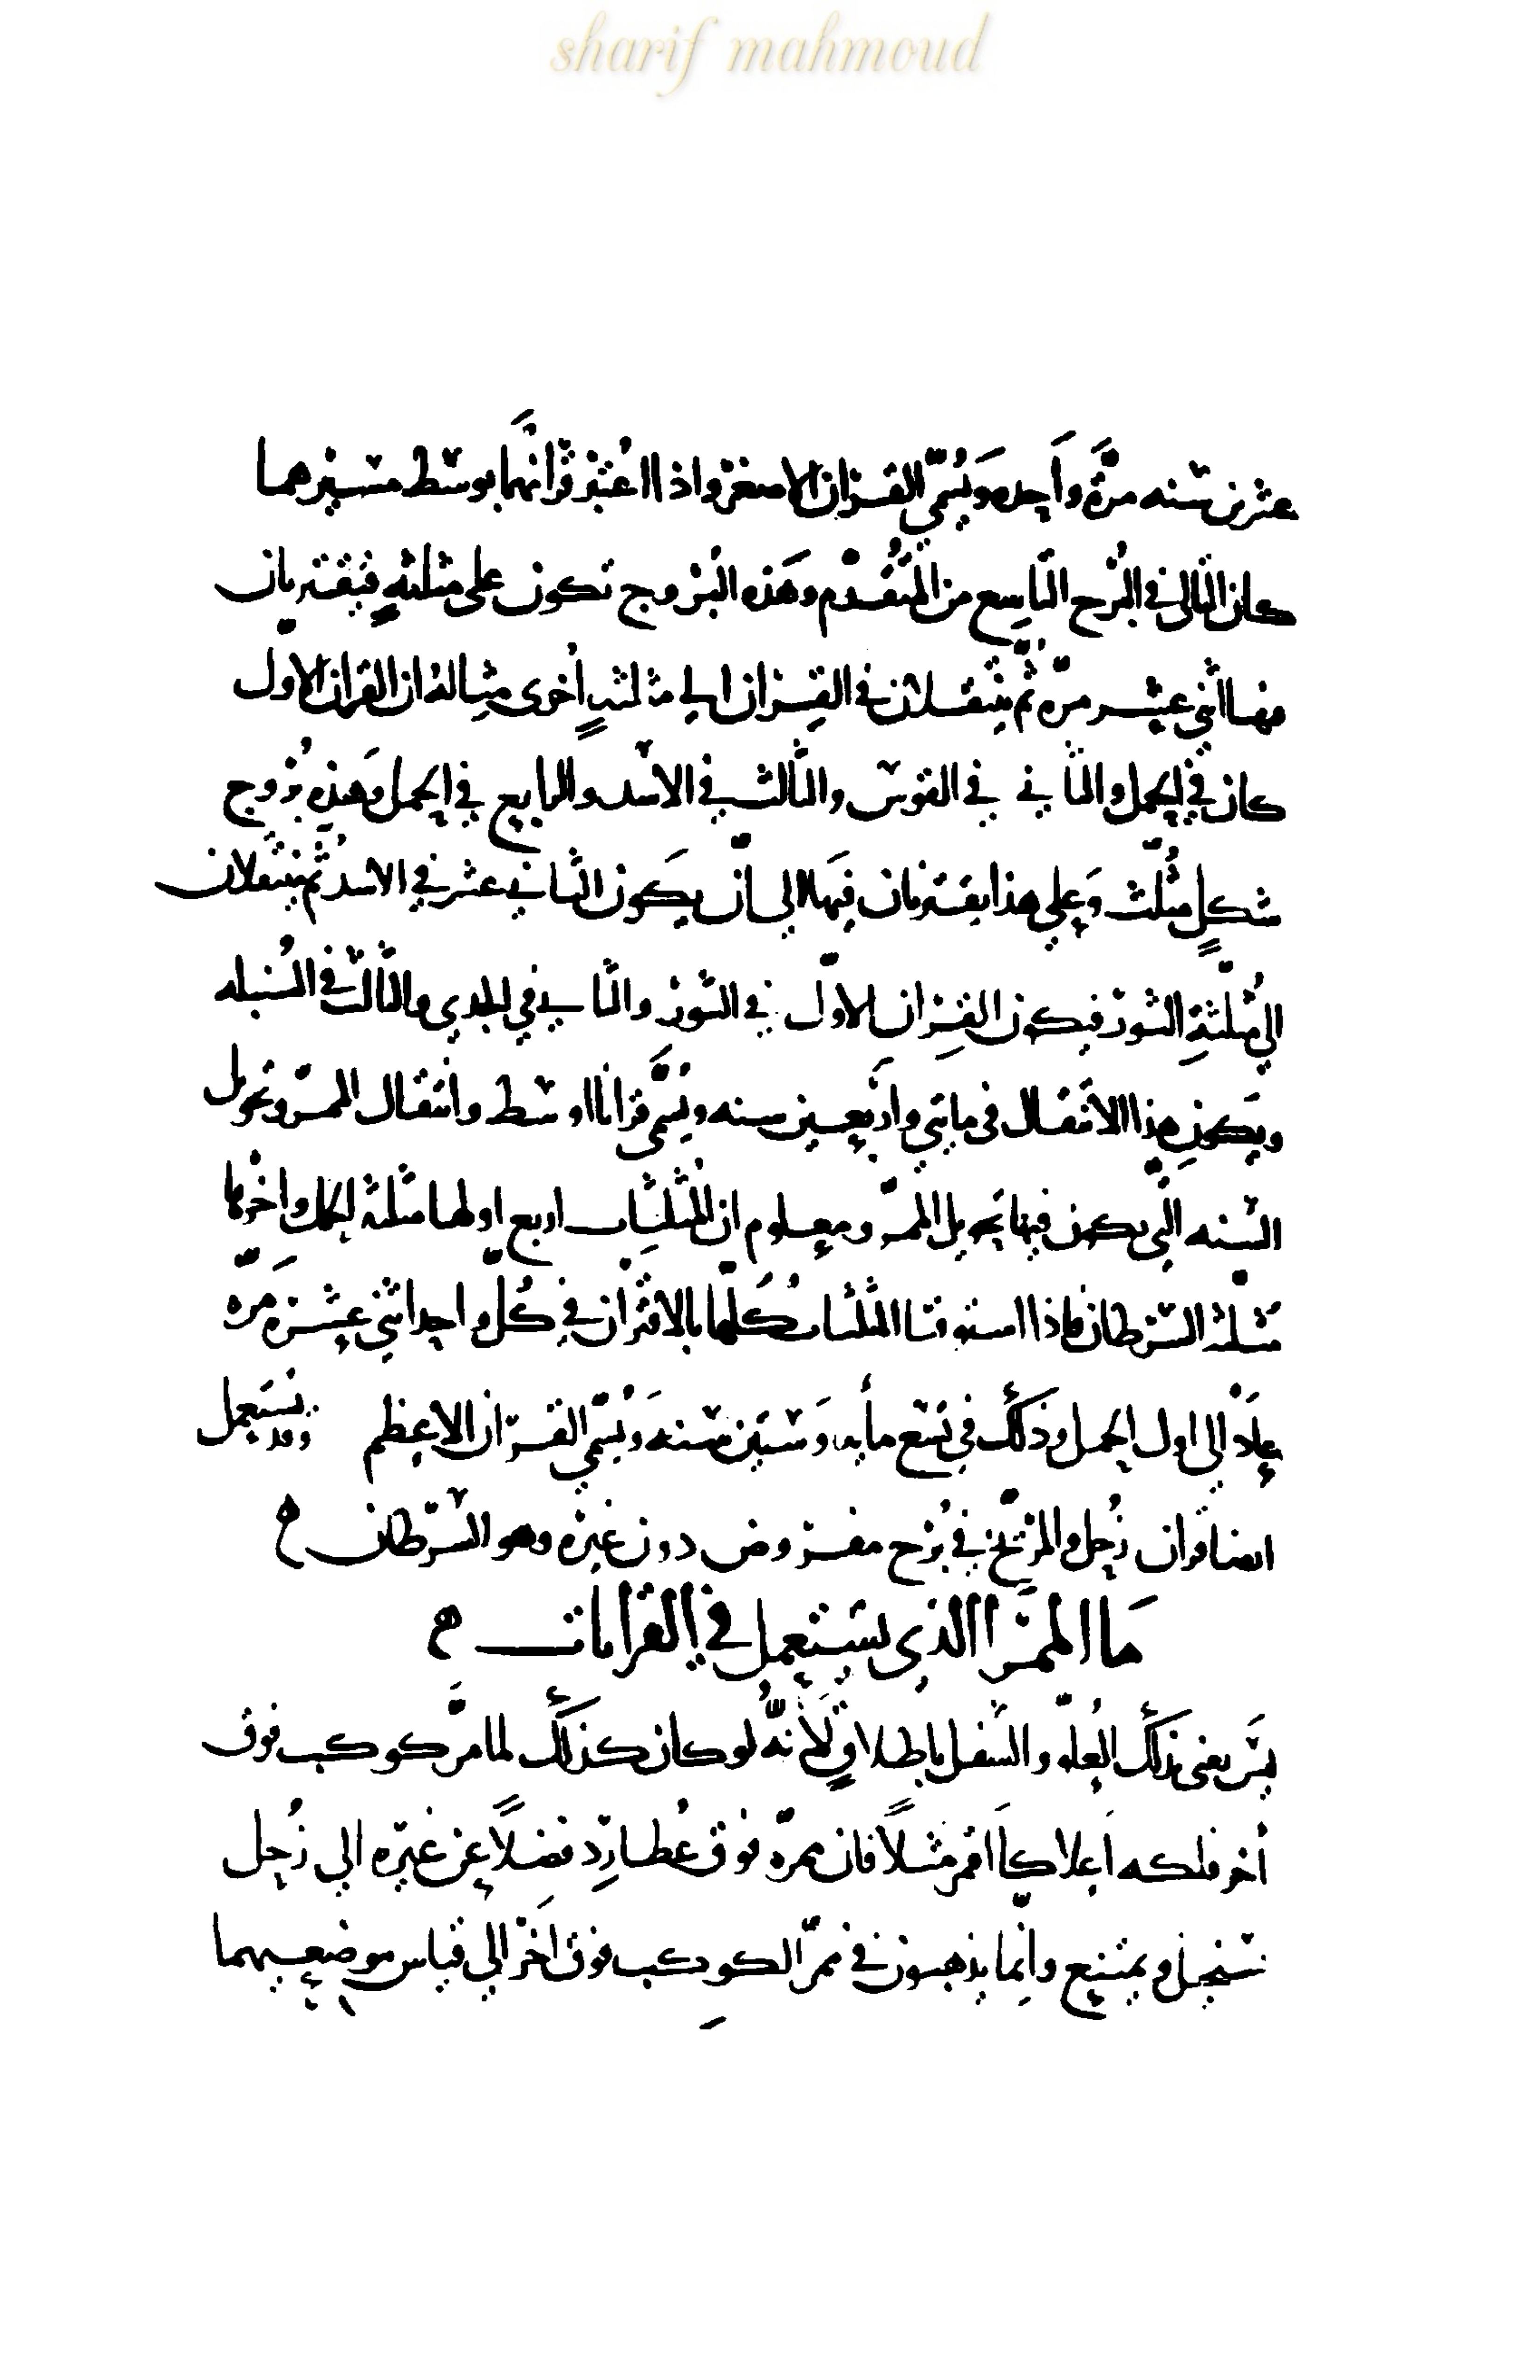 sharif mahmoud
عشرين سنه مرّةً واحده وَيُسمّى القران الاصغر واذا اعُتبر قرانهُما بوسَط مسيرهما
كان الثانى فى البُرج التاسِع من المُتقدّم وهَذه البُروج تكون على مثلثهٍ فيقترنان
فيها اثنى عشر مرّه ثم ينتقلان فى القِران الى مثلثهٍ أخرى مِثاله ان القران الاوّل
كان فى الحمل والثانى فى القوسّ والثالث فى الاسد والرابع فى الحمل وَهذِه بُروج
شكلٍ مثُلّث وَعلى هذا يقترنان فيَها الى انّ يكون الثانى عشر فى الاسد ثُم ينتقلان
الى مُثلثةِ الثور فيكون القِران الاوّل فى الثور والثانى فى الجدى والثالث فى السُنبله
ويكون هذا الانتقال فى مايتى وارَبعين سنه ويُسَمّى قرانا اوسَط وانتقال الممرّ وتحويل
السنه التّى يكون فيها تحويل الممرّ ومعلوم ان المُثلثِات اربع اولها مثلثة الحمل واخرُها
مثلثة السرطان فاذا استوفتا المثلثات كُلّها بالاقتران فى كُلّ واحد اثنى عشرَة مَرّه
عادَ الى اول الحمل وذلَك فى تسع مأيه وَستين سنه وَيُسّمى القران الاعظم وقد يسَتعمل
ايضا قران زُحل والمرّيخ فى بُرج مفروض دون غيره وهو السرّطان
مَا الممَرّ الذى يستعمل فى القرانات
ليَسّ يعنى بذلَك العُلوّ والسّفل باطلاقٍ لأنّهُ لو كان كذلَك لما مرّ كوكب فوق
أخر فلكه اعلا كالقمر مثلاً فان ممرّه فوق عُطارِد فضلاً عن غيرّه الى زُحل
ستحيل ويمتنع وانّما يذهبون فى ممرّ الكوكب فوق اخرَ الى قياس موضعيهما